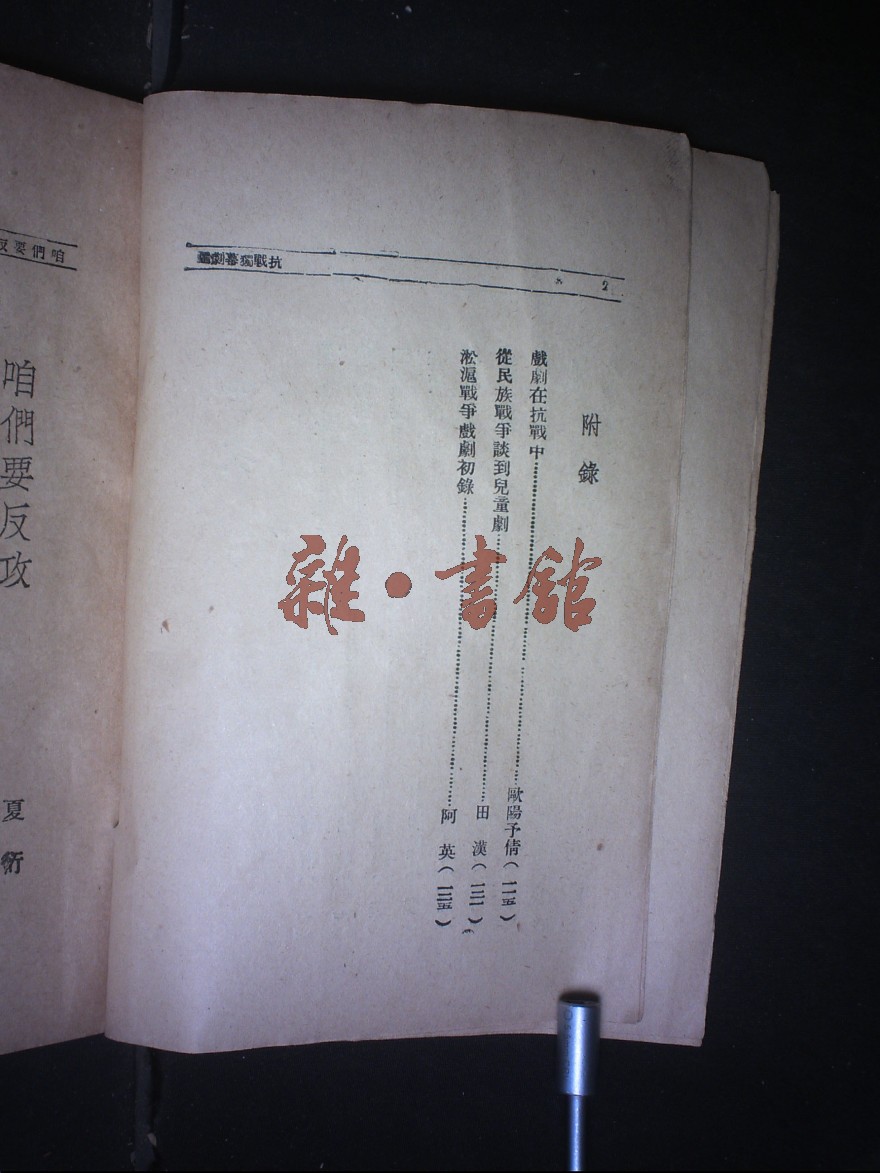 2
抗戰獨幕劇選
附錄
戲劇在抗戰中……歐陽予倩(一一五)
從民族戰爭談到兒童劇……田漢(一三一)
淞滬戰爭戲劇初錄……阿英(一三五)
咱們要反
咱們要反攻
夏衍
雜·書館